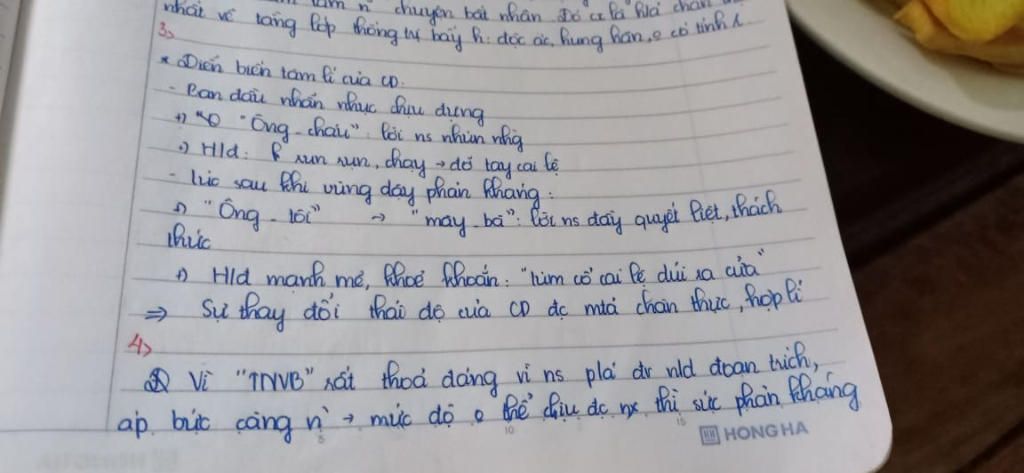 tâm n chuyên bất nhân Đó
nhất về tầng lớp thống trị bấy h: độc ác, hung hãn, o có tính
3>
* Diễn biến tâm lí của CD:
- Ban đầu nhẫn nhục chịu đựng
+) XO "Ông - cháu": lời ns nhún nhg
+) Hđ: R xun xun, chạy → đỡ tay cai lệ
- lúc sau khi vùng dậy phản kháng:
+) "Ông - tôi" → "mày - bà": lời ns đầy quyết liệt, thách
thức
+) Hđ mạnh mẽ, khoẻ khoắn: "túm cổ cai lệ dúi ra cửa"
⇒ Sự thay đổi thái độ của CD đc mtả chân thực, hợp lí
4>
Vì "TNVB" rất thoả đáng vì ns plá đr nld đoạn trích,
áp bức càng n` → mức độ o thể chịu đc nx thì sức phản kháng
HH HONG HA
5
10
15